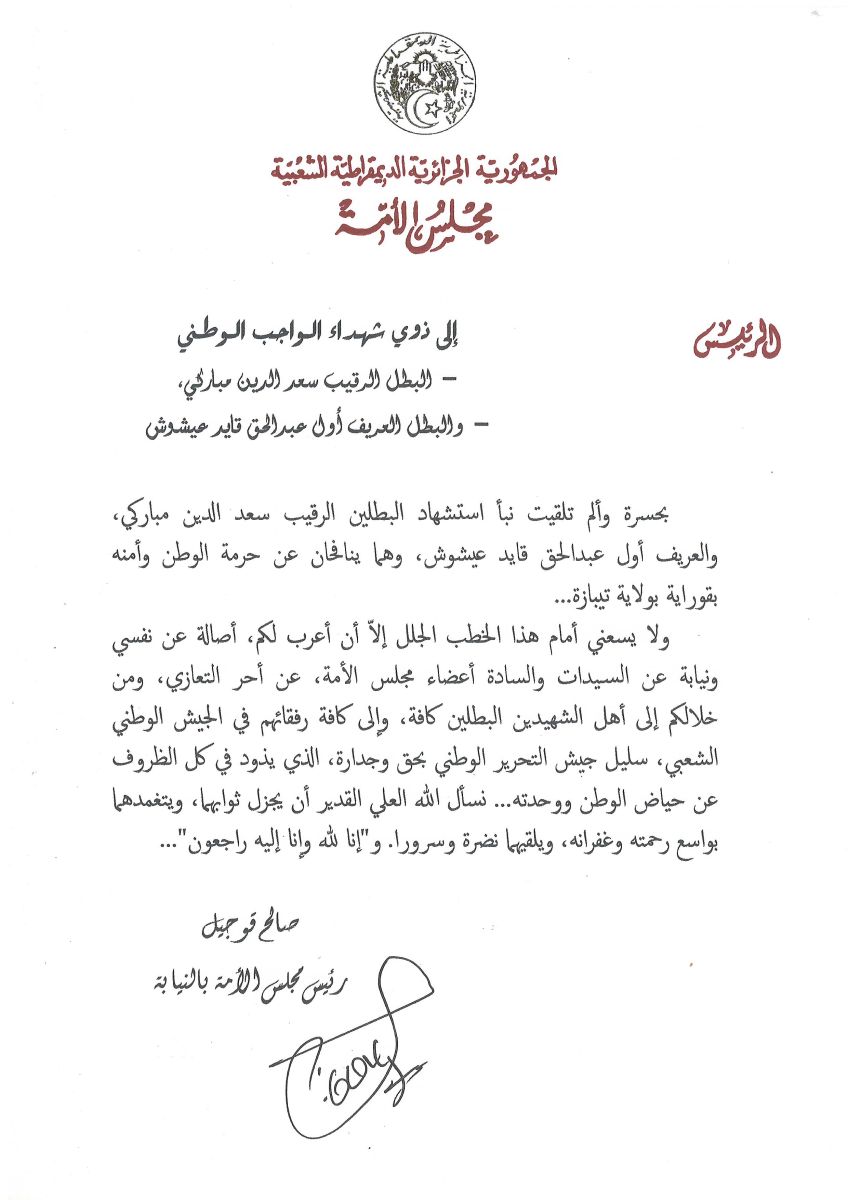 الجمهورية الجزائرية الديمقراطية الشعبية
الجمهُوريّة الجزائريّة الديمقراطيّة الشعْبيّة
مجْلسُ الأمّـة
الرئيس
إلى ذوي شهداء الواجب الوطني
– البطل الرقيب سعد الدين مباركي،
– والبطل العريف أول عبدالحق قايد عيشوش
بحسرة وألم تلقيت نبأ استشهاد البطلين الرقيب سعد الدين مباركي،
والعريف أول عبدالحق قايد عيشوش، وهما ينافحان عن حرمة الوطن وأمنه
بقوراية بولاية تيبازة...
ولا يسعني أمام هذا الخطب الجلل إلاّ أن أعرب لكم، أصالة عن نفسي
ونيابة عن السيدات والسادة أعضاء مجلس الأمة، عن أحر التعازي، ومن
خلالكم إلى أهل الشهيدين البطلين كافة، وإلى كافة رفقائهم في الجيش الوطني
الشعبي، سليل جيش التحرير الوطني بحق وجدارة، الذي يذود في كل الظروف
عن حياض الوطن ووحدته... نسأل الله العلي القدير أن يجزل ثوابهما، ويتغمدهما
بواسع رحمته وغفرانه، ويلقيهما نضرة وسرورا. و"إنا لله وإنا إليه راجعون"...
صالح قوجيل
رئيس مجلس الأمة بالنيابة